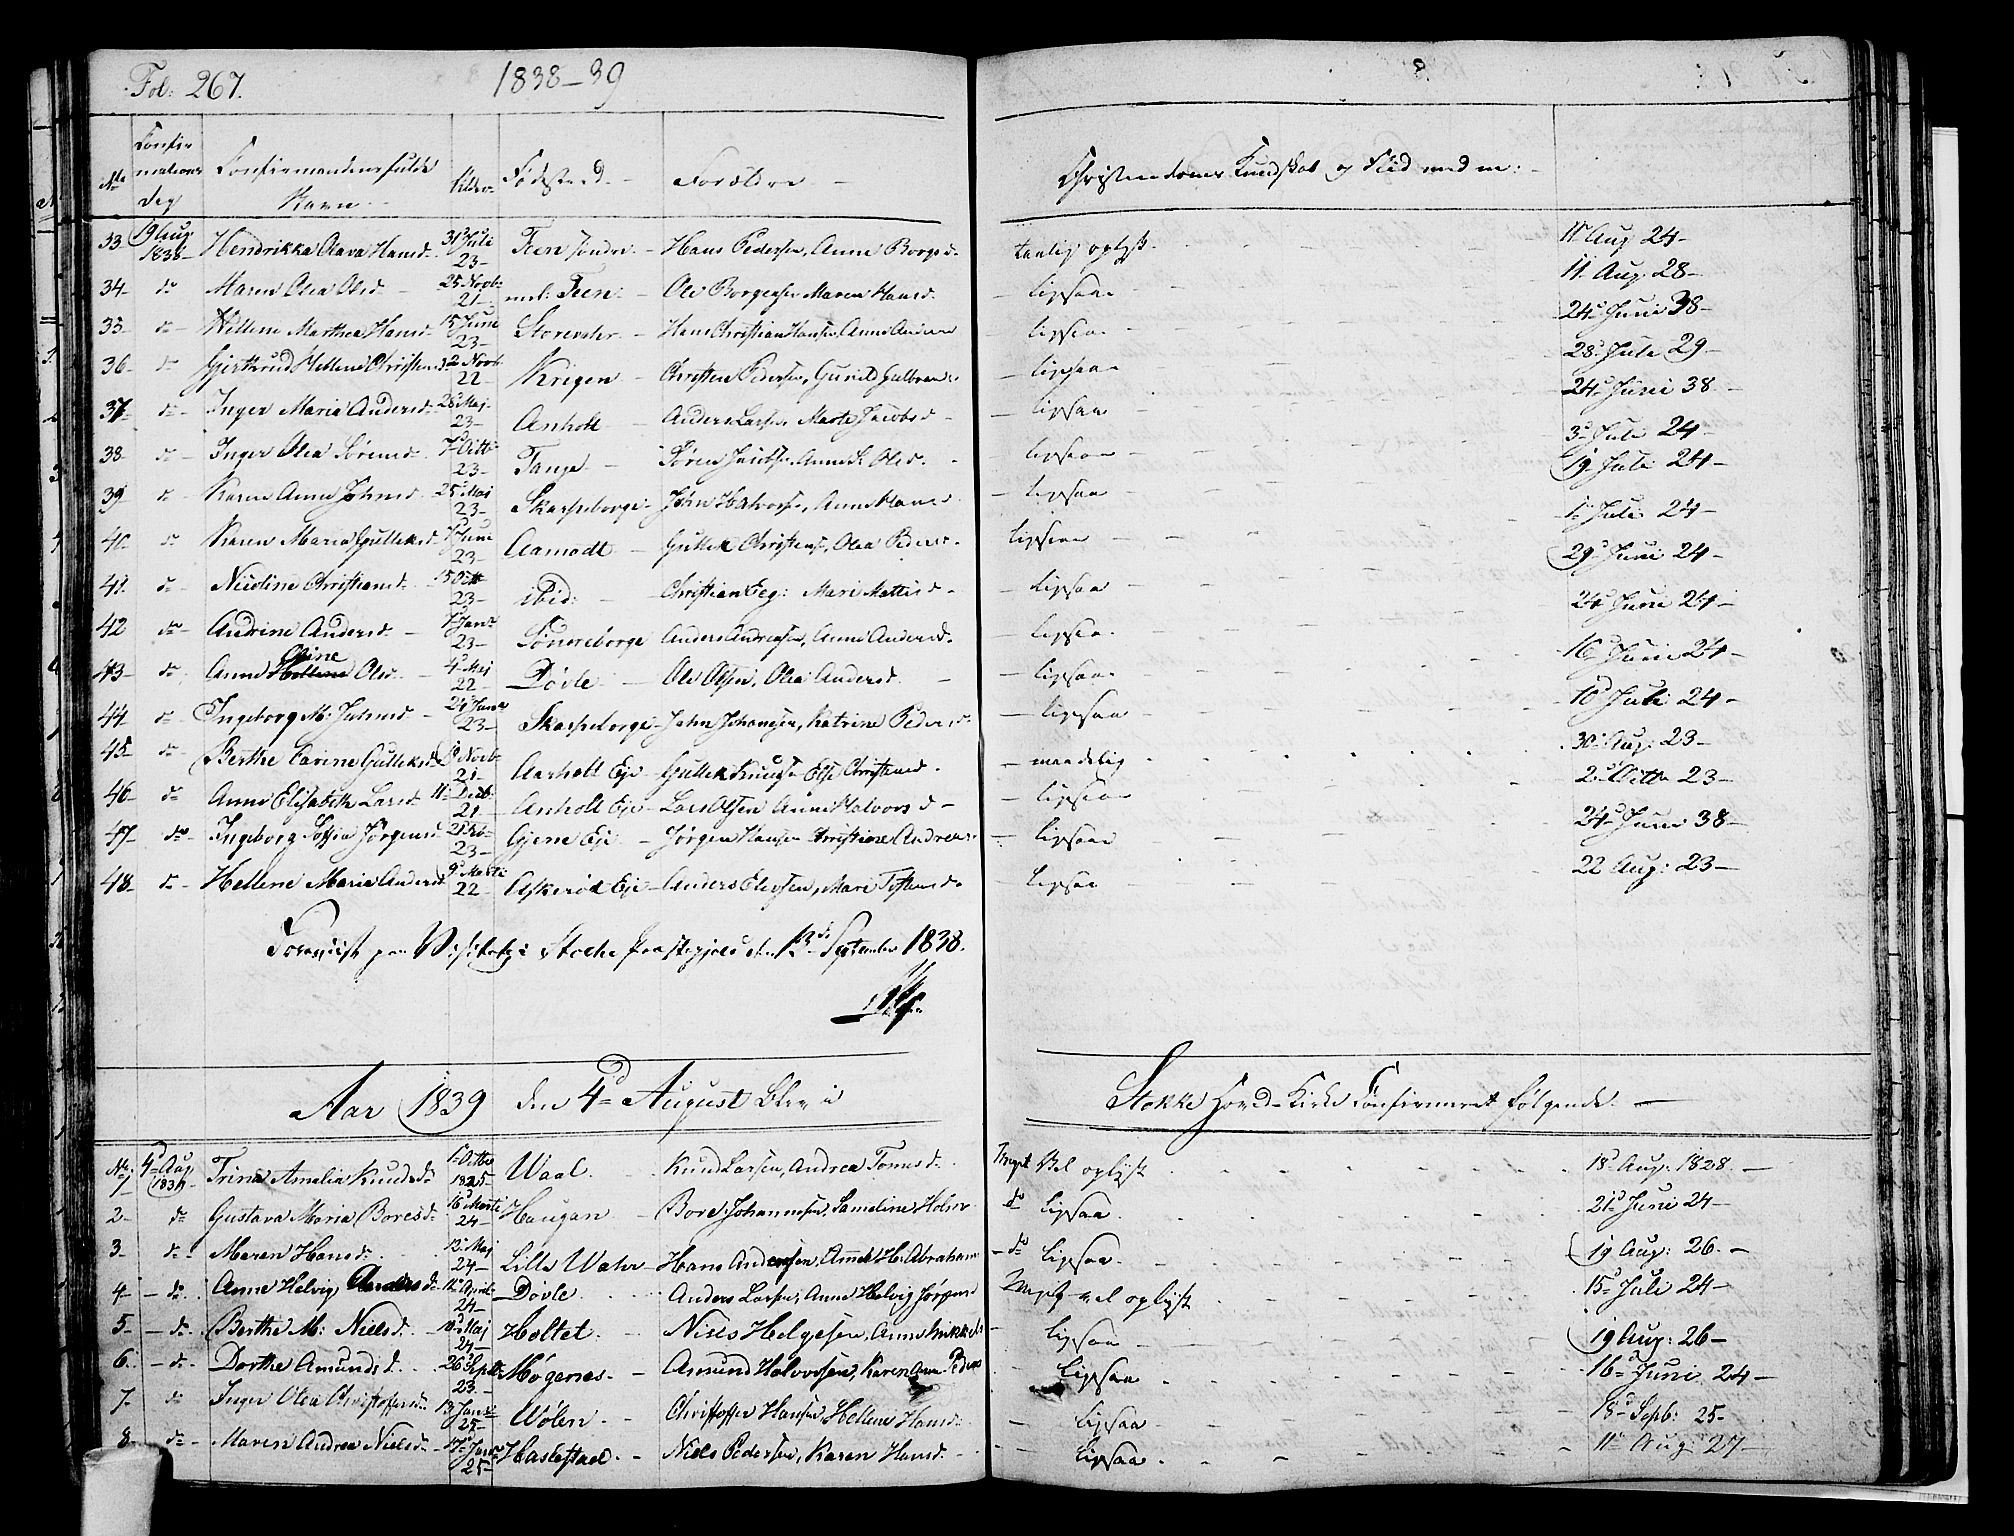 Fol: 267.
1838-39
No Confirmations Dag Confirmandens fulde Navn Alder Fødested Forældre Christendoms Kundskab og Flid med m:
33 19 Aug 1838 Hendrikka Olava Hansd. 31 Juli 23 Feen søndre Hans Pedersen, Anne Borgsd. taalig oplyst 11 Aug 24
34 do Maren Olea Olsd 25 Novb: 21 mel: Feen Ole Borgersen Maren Hansd. ligesaa 11 Aug 28
35 do Hellene Marthea Hansd 15 Juni 23 Storevar Hans Christian Hansen, Anne Anders ligesaa 24 Juni 38
36 do Gjertrud Hellene Christens 2 Novb 22 Krigen Christen Pedersen, Gunild Gulbrands ligesaa 28 Juli 29
37 do Inger Maria Andersd. 28 Maj 23 Anholt Anders Larsen Marte Jacobsd ligesaa 24 Juni 38
38 do Inger Olea Sørensd 7 Octb 23 Tange Søren Olsd. ligesaa 3 Juli 24
39 do Karen Anne Johnsd 25 Maj 23 Skarpeborge John Halvorsen, Anne Hansd ligesaa 19 Juli 24
40 do Karen Maria Gulleksd Juni 23 Aamodt Gullek Christens, Olea Peders ligesaa 1 Juli 24
41 do Nicoline Christiansd. 15 Octb 23 ibid: Christian Eeg: Mari Mattisd ligesaa 29 Juni 24
42 do Andrine Andersd 7 Janr 23 Sønreborge Anders Andreasen, Anne Andersd. ligesaa 24 Juni 24
43 do Anne Oline Olsd 4 Maj 22 Døvle Ole Olsen, Olea Andersd. ligesaa 16 Juni 24
44 do Ingeborg M. Johnsd 24 Janr 23 Skarpeborge John Johansen, Katrine Pedersd ligesaa 18 Juli 24
45 do Berthe Carine Gulleksd Novb 21 Aarholt Eje Gullek Knudsen Else Christensd. maadelig 30 Aug: 23
46 do Anne Elisabeth Larsd 11 Decb: 21 Anholt Eje Lars Olsen Anne Halvorsd ligesaa 2 Octbr 23
47 do Ingeborg Sofia Jørgensd 23 Gjerne Eje Jørgen Hansen Christiane Andreas ligesaa 24 Juni 38
48 do Hellene Maria Andersd 9 Marti 22 Askerød Eje Anders Elevsen, Mari Tostensd. ligesaa 22 Aug: 23
Foreviist paa Visitats i Stocke Præstegjeld den 13de September 1838.
Aar 1839 den 4d August blev i Stokke Hoved-Kirke Confirmeret følgende.
No. 1 4 Aug 1839 Trine Amalia Knudsd 1 Octbr 1825 Waal Knud Larsen, Andrea Tomasd. Meget Vel oplyst 18 Aug: 1828.
2 do Gustava Maria Boresd. 16 Marti 24 Haugan Bore Johannesen, Sameline Holm do ligesaa 21 Juni 24
3 do Maren Hansd. 12 Maj 24 Lille Wahr Hans Andersen, Anne H. Abraham do ligesaa 19 Aug: 26.
4 do Anne Helvig Andersd. 12 April 24 Døvle Anders Larsen, Anne Helvig Jørgens Meget vel oplyst 15 Juli 24
5 do Berthe M: Nielsd. 10 Maj 24 Holtet Niels Helgesen, Anne Mikkels ligesaa 19 Aug: 26
6 do Dorthe Amundsd. 26 Septb 23. Møgernes Amund Halvorsen, Karen Anne Peders ligesaa 16 Juni 24
7 do Inger Olea Christoffersd. 13 Janr 25 Wølen Christoffer Hansen, Hellene Hansd: ligesaa 18 Septb: 25
8 do Maren Andrea Nielsd. 17 Janr 25 Haslestad Niels Pedersen, Karen Hansd. ligesaa 11 Aug: 27